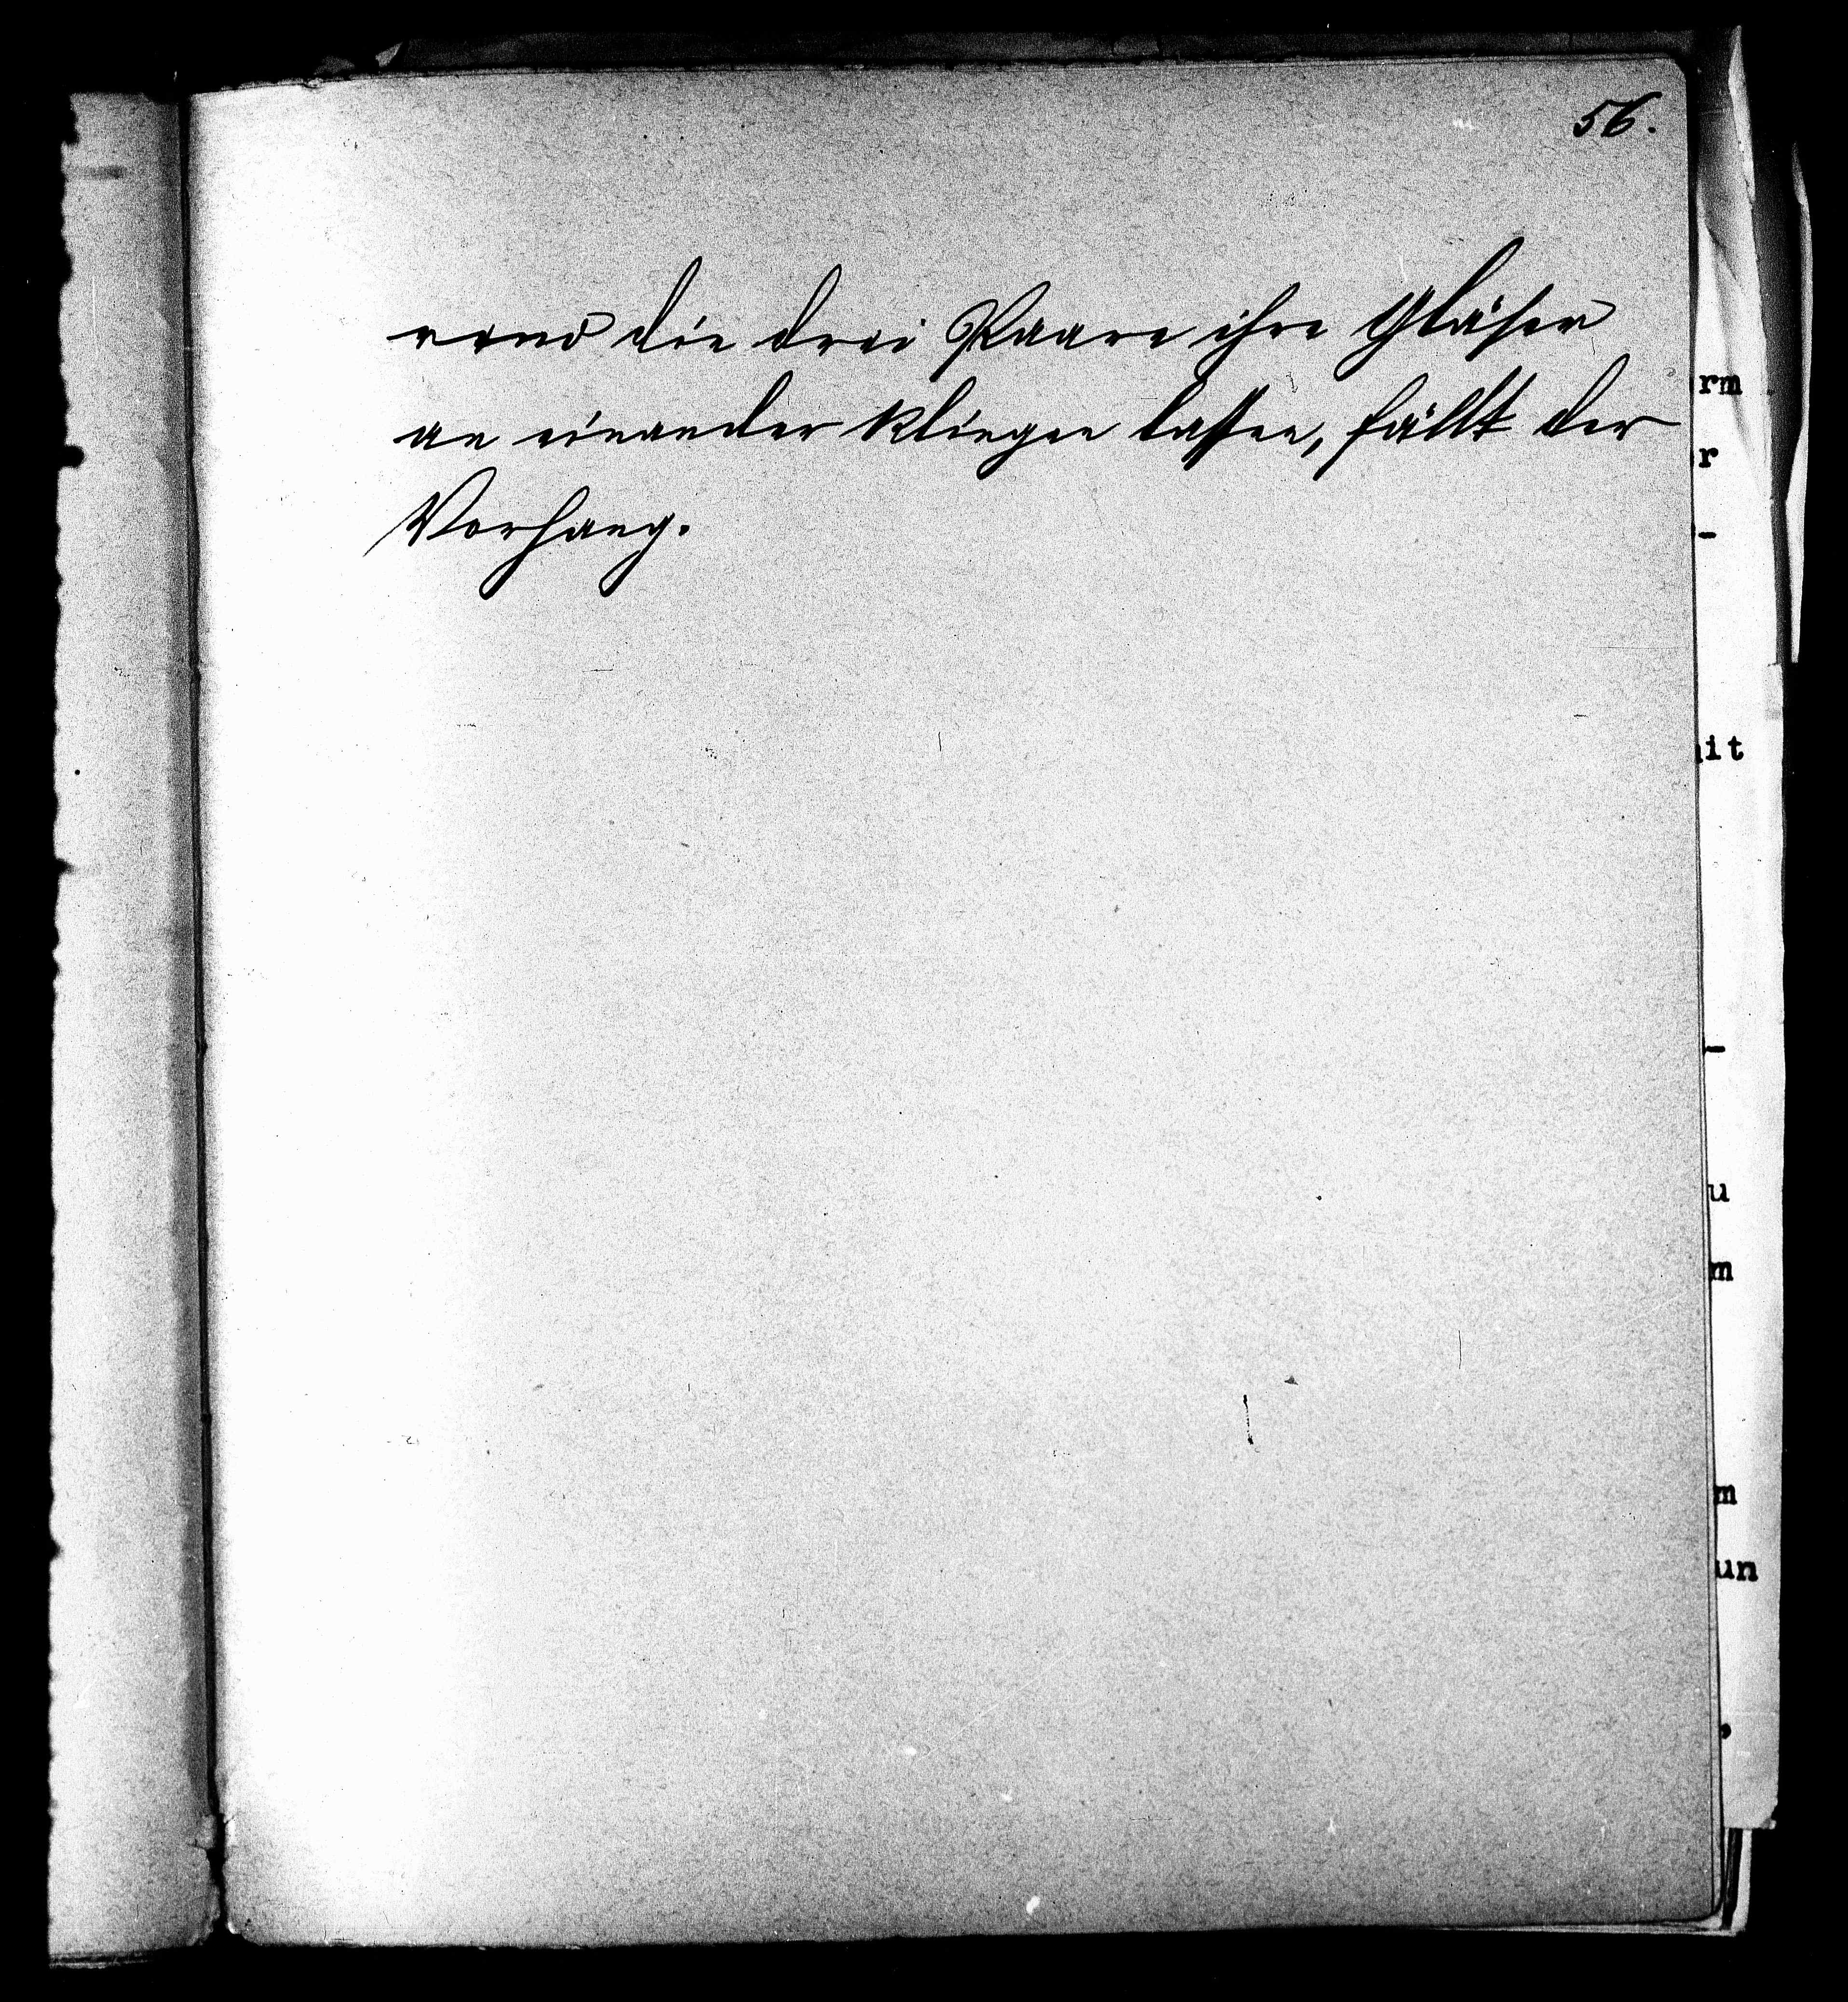 56.
rend die drei Paare ihre Gläser
an einander klingen lassen, fällt der
Vorhang.
rm
r
-
it
-
u
m
m
un
,